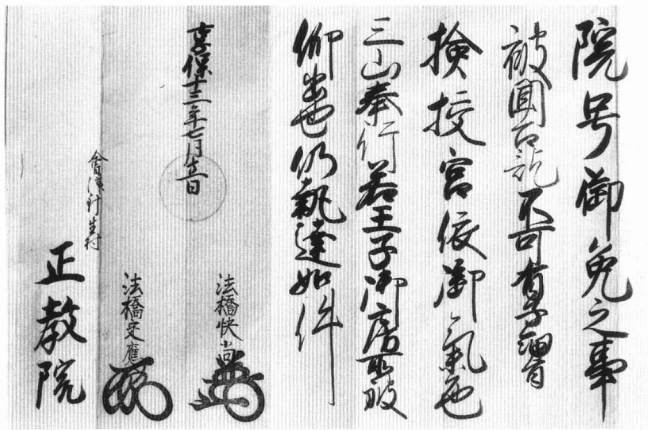 院号御免之事
被聞召訖不可有子細旨
検校宮依御氣色
三山奉行若王子御房所被
仰出也仍執達如件
享保十三年七月
法橋快尚
法橋
會津針生村
正教院